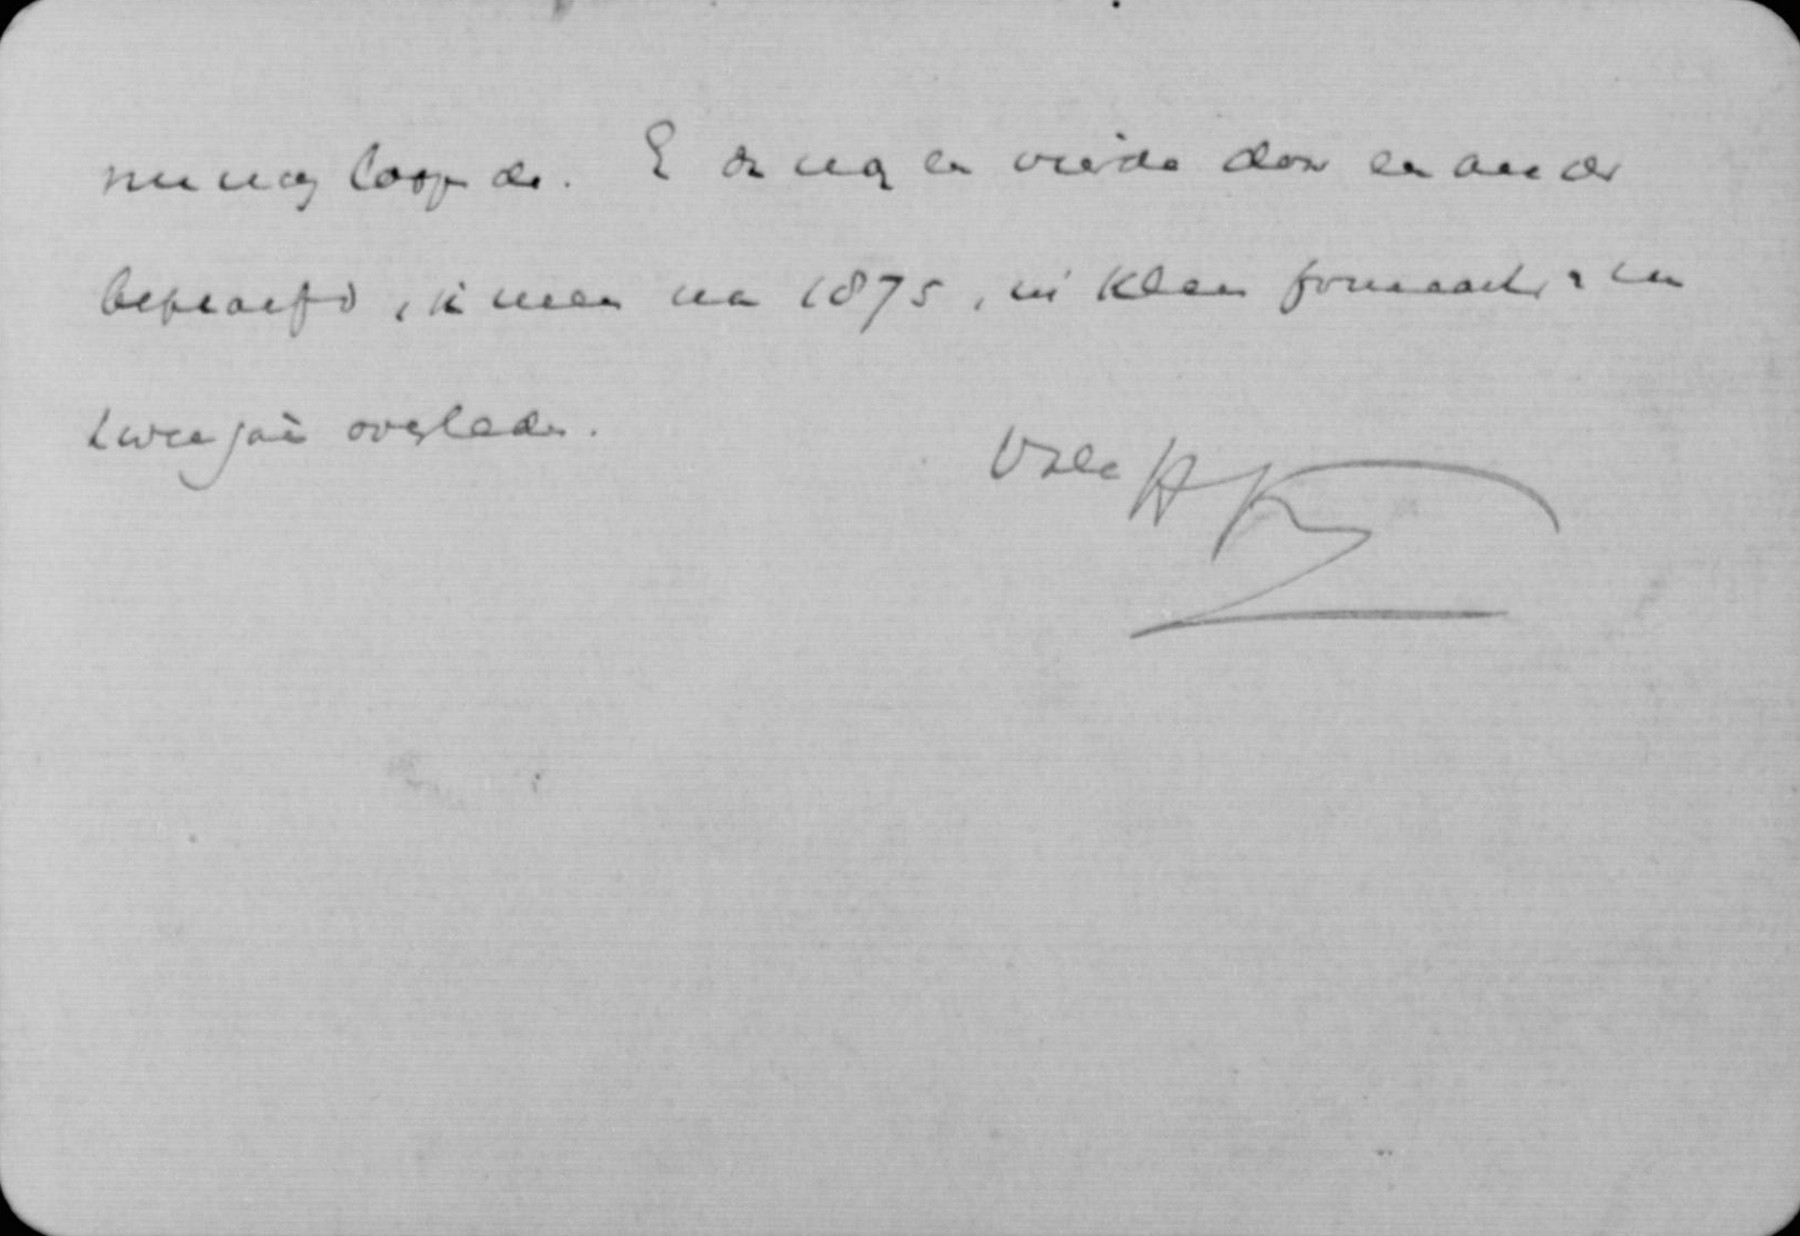 nu nog loopende. Er is nog en vierde door een ander
beproefd, ik meen na 1875, in klein formaat, en
twee jaar overleden.
Vale HK